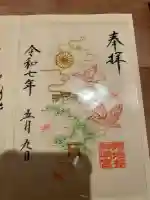 奉拝
令和七年 五月九日